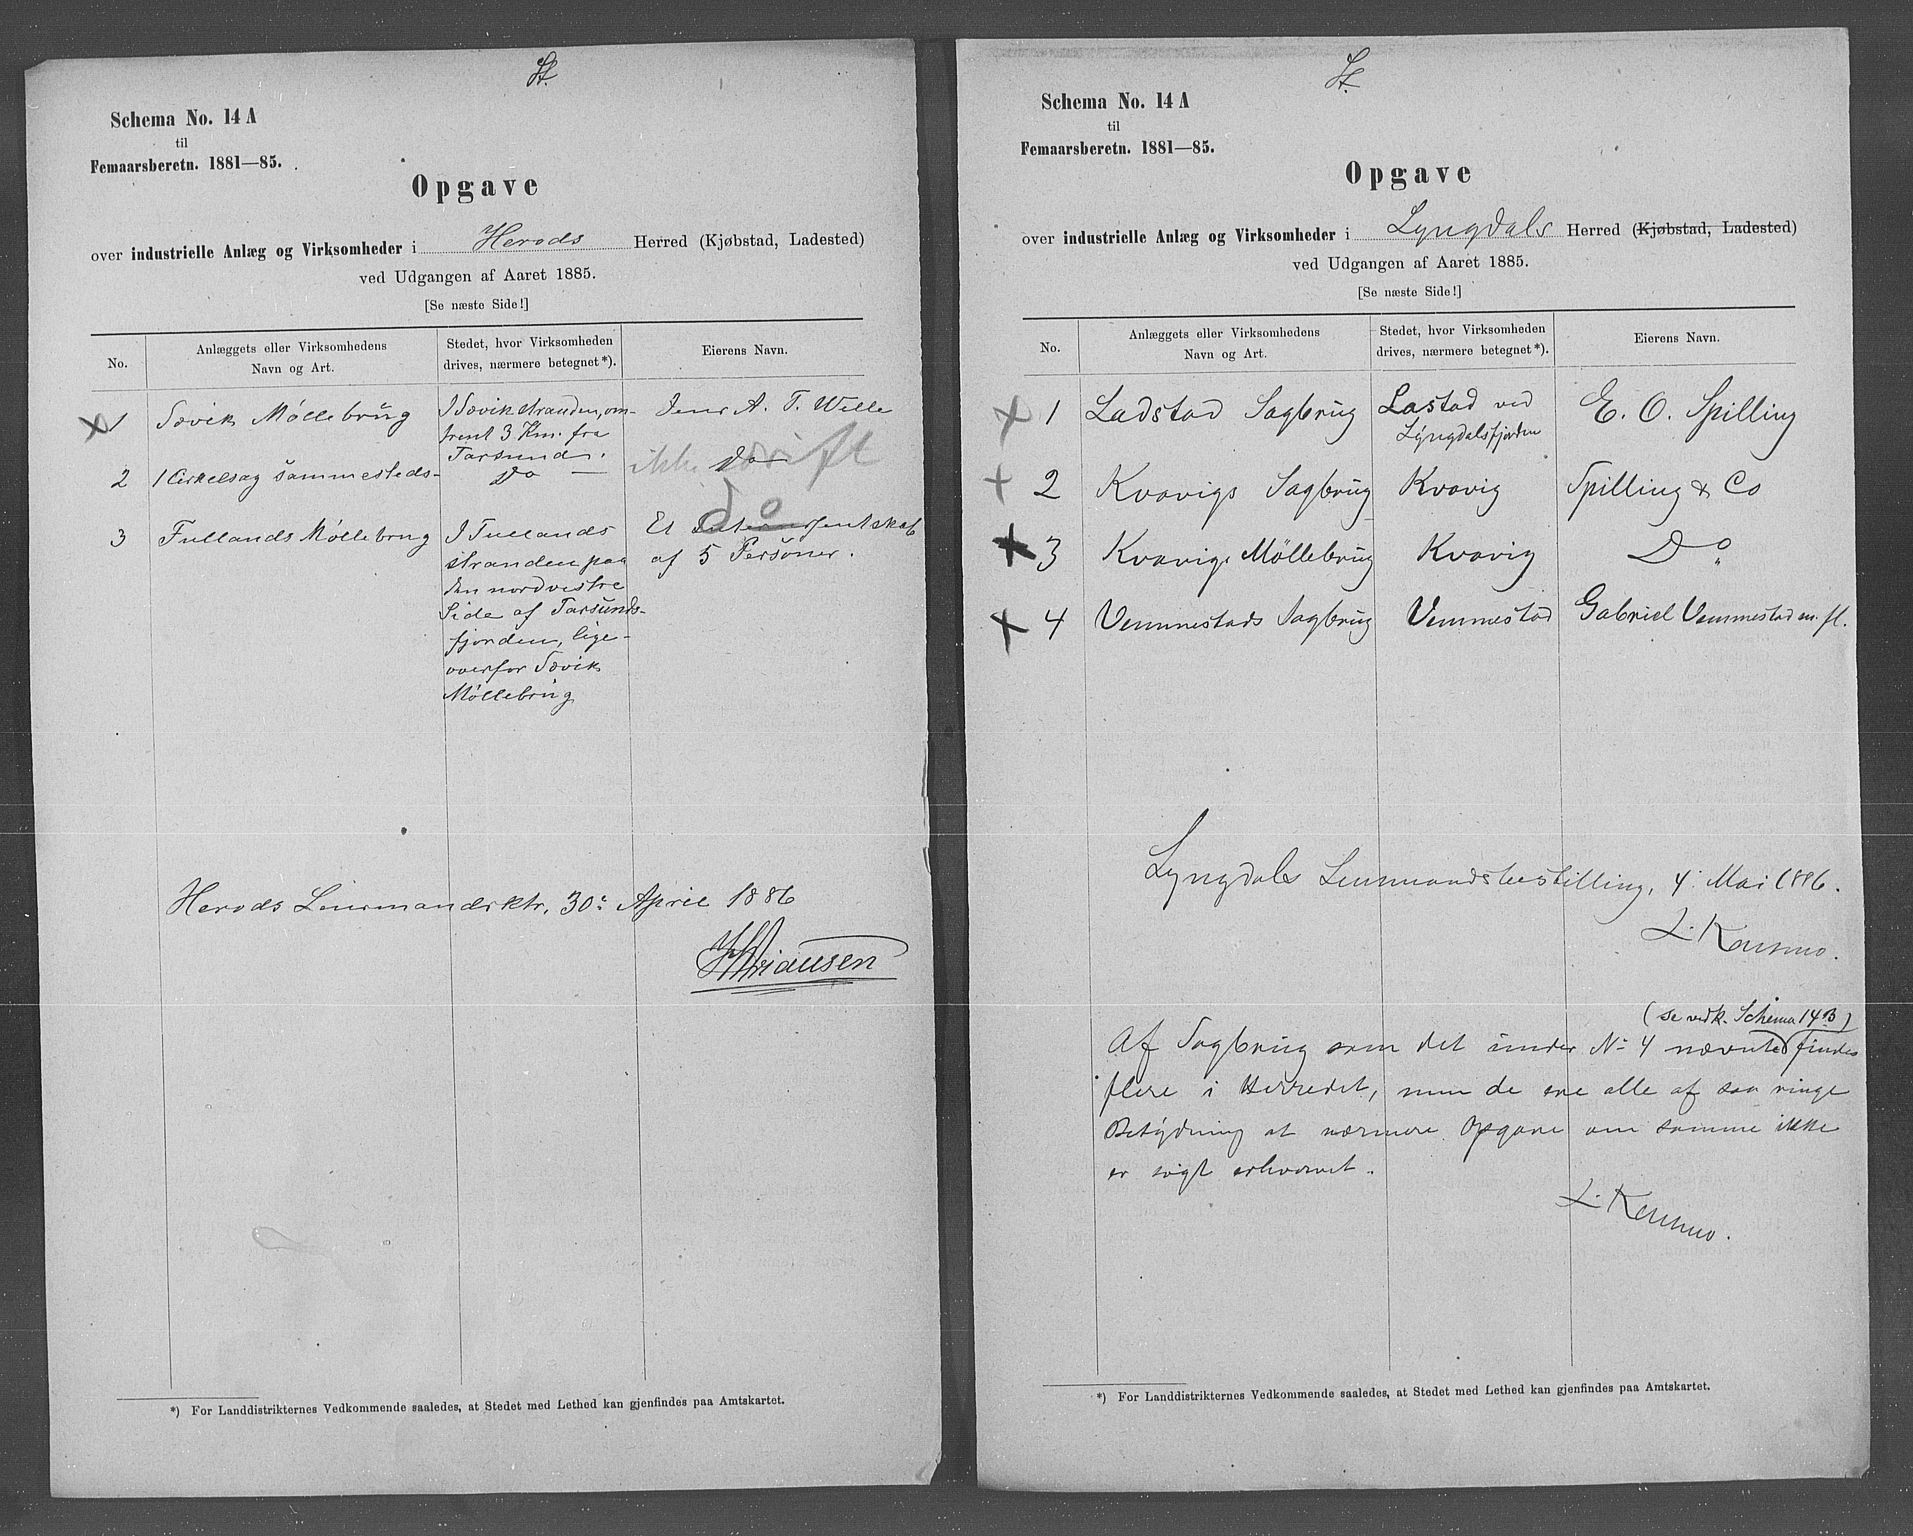 St.
Schema No. 14 A
til
Femaarsberetn. 1881—85.
Opgave
over industrielle Anlæg og Virksomheder i Herods Herred (Kjøbstad, Ladested)
ved Udgangen af Aaret 1885.
[Se næste Side!]
No.
Anlæggets eller Virksomhedens
Navn og Art.
Stedet, hvor Virksomheden
drives, nærmere betegnet*).
Eierens Navn.
1 Sævik Møllebrug
I Sævikstranden, om-
trent 3 Km. fra
Farsund.
Jens A. T. Wille
2 1 Cirkelsag sammesteds
Do —
Do
ikke drift
do
3 Fullands Møllebrug
I Fullands
stranden paa
den nordvestre
Side af Farsunds-
fjorden, lige-
overfor Sævik
Møllebrug
Et Interessentskab
af 5 Personer.
Herods Lensmandsktr, 30: April 1886
*) For Landdistrikternes Vedkommende saaledes, at Stedet med Lethed kan gjenfindes paa Amtskartet.
St.
Schema No. 14 A
til
Femaarsberetn. 1881—85.
Opgave
over industrielle Anlæg og Virksomheder i Lyngdals Herred (Kjøbstad, Ladested)
ved Udgangen af Aaret 1885.
[Se næste Side!]
No.
Anlæggets eller Virksomhedens
Navn og Art.
Stedet, hvor Virksomheden
drives, nærmere betegnet*).
Eierens Navn.
1 Ladstad Sagbrug
Lastad ved
Lyngdalsfjorden
E. O. Spilling
2 Kvavigs Sagbrug Kvavig Spilling & Co
3 Kvavigs Møllebrug Kvavig Do
4 Vemmestads Sagbrug Vemmestad Gabriel Vemmestad m. fl.
Lyngdals Lensmandsbestilling, 4. Mai 1886.
L. Konsmo.
(se vedk. Schema 14 B)
Af Sagbrug som det under No 4 nævnte findes
flere i Herredet, men de ere alle af saa ringe
Betydning at nærmere Opgave om samme ikke
er søgt erhvervet.
L. Konsmo.
*) For Landdistrikternes Vedkommende saaledes, at Stedet med Lethed kan gjenfindes paa Amtskartet.